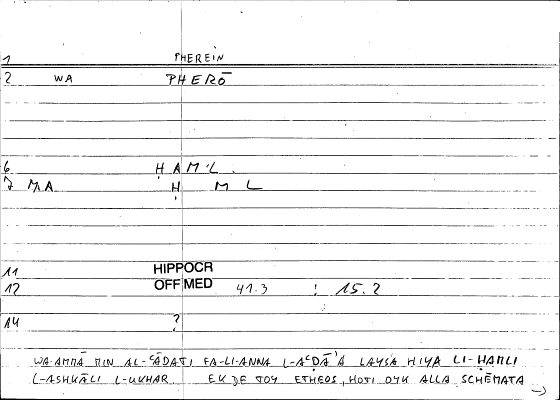 1 PHEREIN
2 WA PHERŌ
6 ḤAML
7 MA Ḥ M L
11 HIPPOCR
12 OFF MED 41.3 : 15.2
14 ?
WA-AMMĀ MIN AL-ʿĀDATI FA-LI-ANNA L-AʿḌĀʾA LAYSA HIYA LI-ḤAMLI
L-ASHKĀLI L-UKHAR. EK DE TOY ETHEOS, HOTI OYK ALLA SCHĒMATA
→